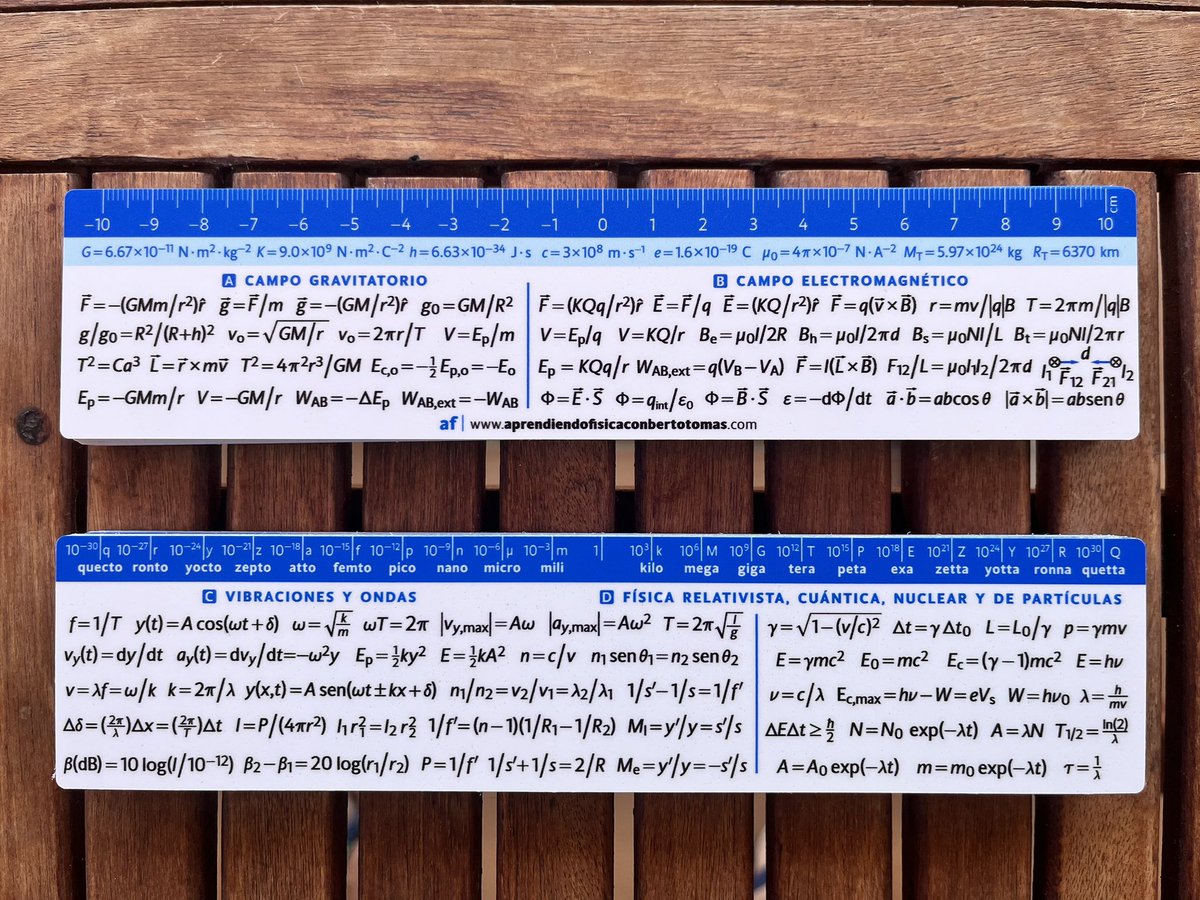 −10 −9 −8 −7 −6 −5 −4 −3 −2 −1 0 1 2 3 4 5 6 7 8 9 10 cm
G=6.67×10⁻¹¹ N·m²·kg⁻² K=9.0×10⁹ N·m²·C⁻² h=6.63×10⁻³⁴ J·s c=3×10⁸ m·s⁻¹ e=1.6×10⁻¹⁹ C μ₀=4π×10⁻⁷ N·A⁻² M_T=5.97×10²⁴ kg R_T=6370 km
A CAMPO GRAVITATORIO
F⃗=−(GMm/r²)r̂ g⃗=F⃗/m g⃗=−(GM/r²)r̂ g₀=GM/R²
g/g₀=R²/(R+h)² v₀=√(GM/r) v₀=2πr/T V=Eₚ/m
T²=Ca³ L⃗=r⃗×mv⃗ T²=4π²r³/GM E_c,o=−½E_p,o=−E_o
Eₚ=−GMm/r V=−GM/r W_AB=−ΔEₚ W_AB,ext=−W_AB
B CAMPO ELECTROMAGNÉTICO
F⃗=(KQq/r²)r̂ E⃗=F⃗/q E⃗=(KQ/r²)r̂ F⃗=q(v⃗×B⃗) r=mv/|q|B T=2πm/|q|B
V=Eₚ/q V=KQ/r B_e=μ₀I/2R B_h=μ₀I/2πd B_s=μ₀NI/L B_t=μ₀NI/2πr
Eₚ=KQq/r W_AB,ext=q(V_B−V_A) F⃗=I(L⃗×B⃗) F₁₂/L=μ₀I₁I₂/2πd I₁ F⃗₁₂ d F⃗₂₁ I₂
Φ=E⃗·S⃗ Φ=q_int/ε₀ Φ=B⃗·S⃗ ε=−dΦ/dt a⃗·b⃗=abcosθ |a⃗×b⃗|=absenθ
af | www.aprendiendofisicaconbertotomas.com
10⁻³⁰ q 10⁻²⁷ r 10⁻²⁴ y 10⁻²¹ z 10⁻¹⁸ a 10⁻¹⁵ f 10⁻¹² p 10⁻⁹ n 10⁻⁶ μ 10⁻³ m 1 10³ k 10⁶ M 10⁹ G 10¹² T 10¹⁵ P 10¹⁸ E 10²¹ Z 10²⁴ Y 10²⁷ R 10³⁰ Q
quecto ronto yocto zepto atto femto pico nano micro mili kilo mega giga tera peta exa zetta yotta ronna quetta
C VIBRACIONES Y ONDAS
f=1/T y(t)=A cos(ωt+δ) ω=√(k/m) ωT=2π |v_y,max|=Aω |a_y,max|=Aω² T=2π√(l/g)
v_y(t)=dy/dt a_y(t)=dv_y/dt=−ω²y Eₚ=½ky² E=½kA² n=c/v n₁ sen θ₁=n₂ sen θ₂
v=λf=ω/k k=2π/λ y(x,t)=A sen(ωt±kx+δ) n₁/n₂=v₂/v₁=λ₂/λ₁ 1/s′−1/s=1/f′
Δδ=(2π/λ)Δx=(2π/T)Δt I=P/(4πr²) I₁r₁²=I₂r₂² 1/f′=(n−1)(1/R₁−1/R₂) M_l=y′/y=s′/s
β(dB)=10 log(I/10⁻¹²) β₂−β₁=20 log(r₁/r₂) P=1/f′ 1/s′+1/s=2/R M_e=y′/y=−s′/s
D FÍSICA RELATIVISTA, CUÁNTICA, NUCLEAR Y DE PARTÍCULAS
γ=√(1−(v/c)²) Δt=γ Δt₀ L=L₀/γ p=γmv
E=γmc² E₀=mc² E_c=(γ−1)mc² E=hν
ν=c/λ E_c,max=hν−W=eV_s W=hν₀ λ=h/mv
ΔEΔt≥ħ/2 N=N₀ exp(−λt) A=λN T₁/₂=ln(2)/λ
A=A₀ exp(−λt) m=m₀ exp(−λt) τ=1/λ